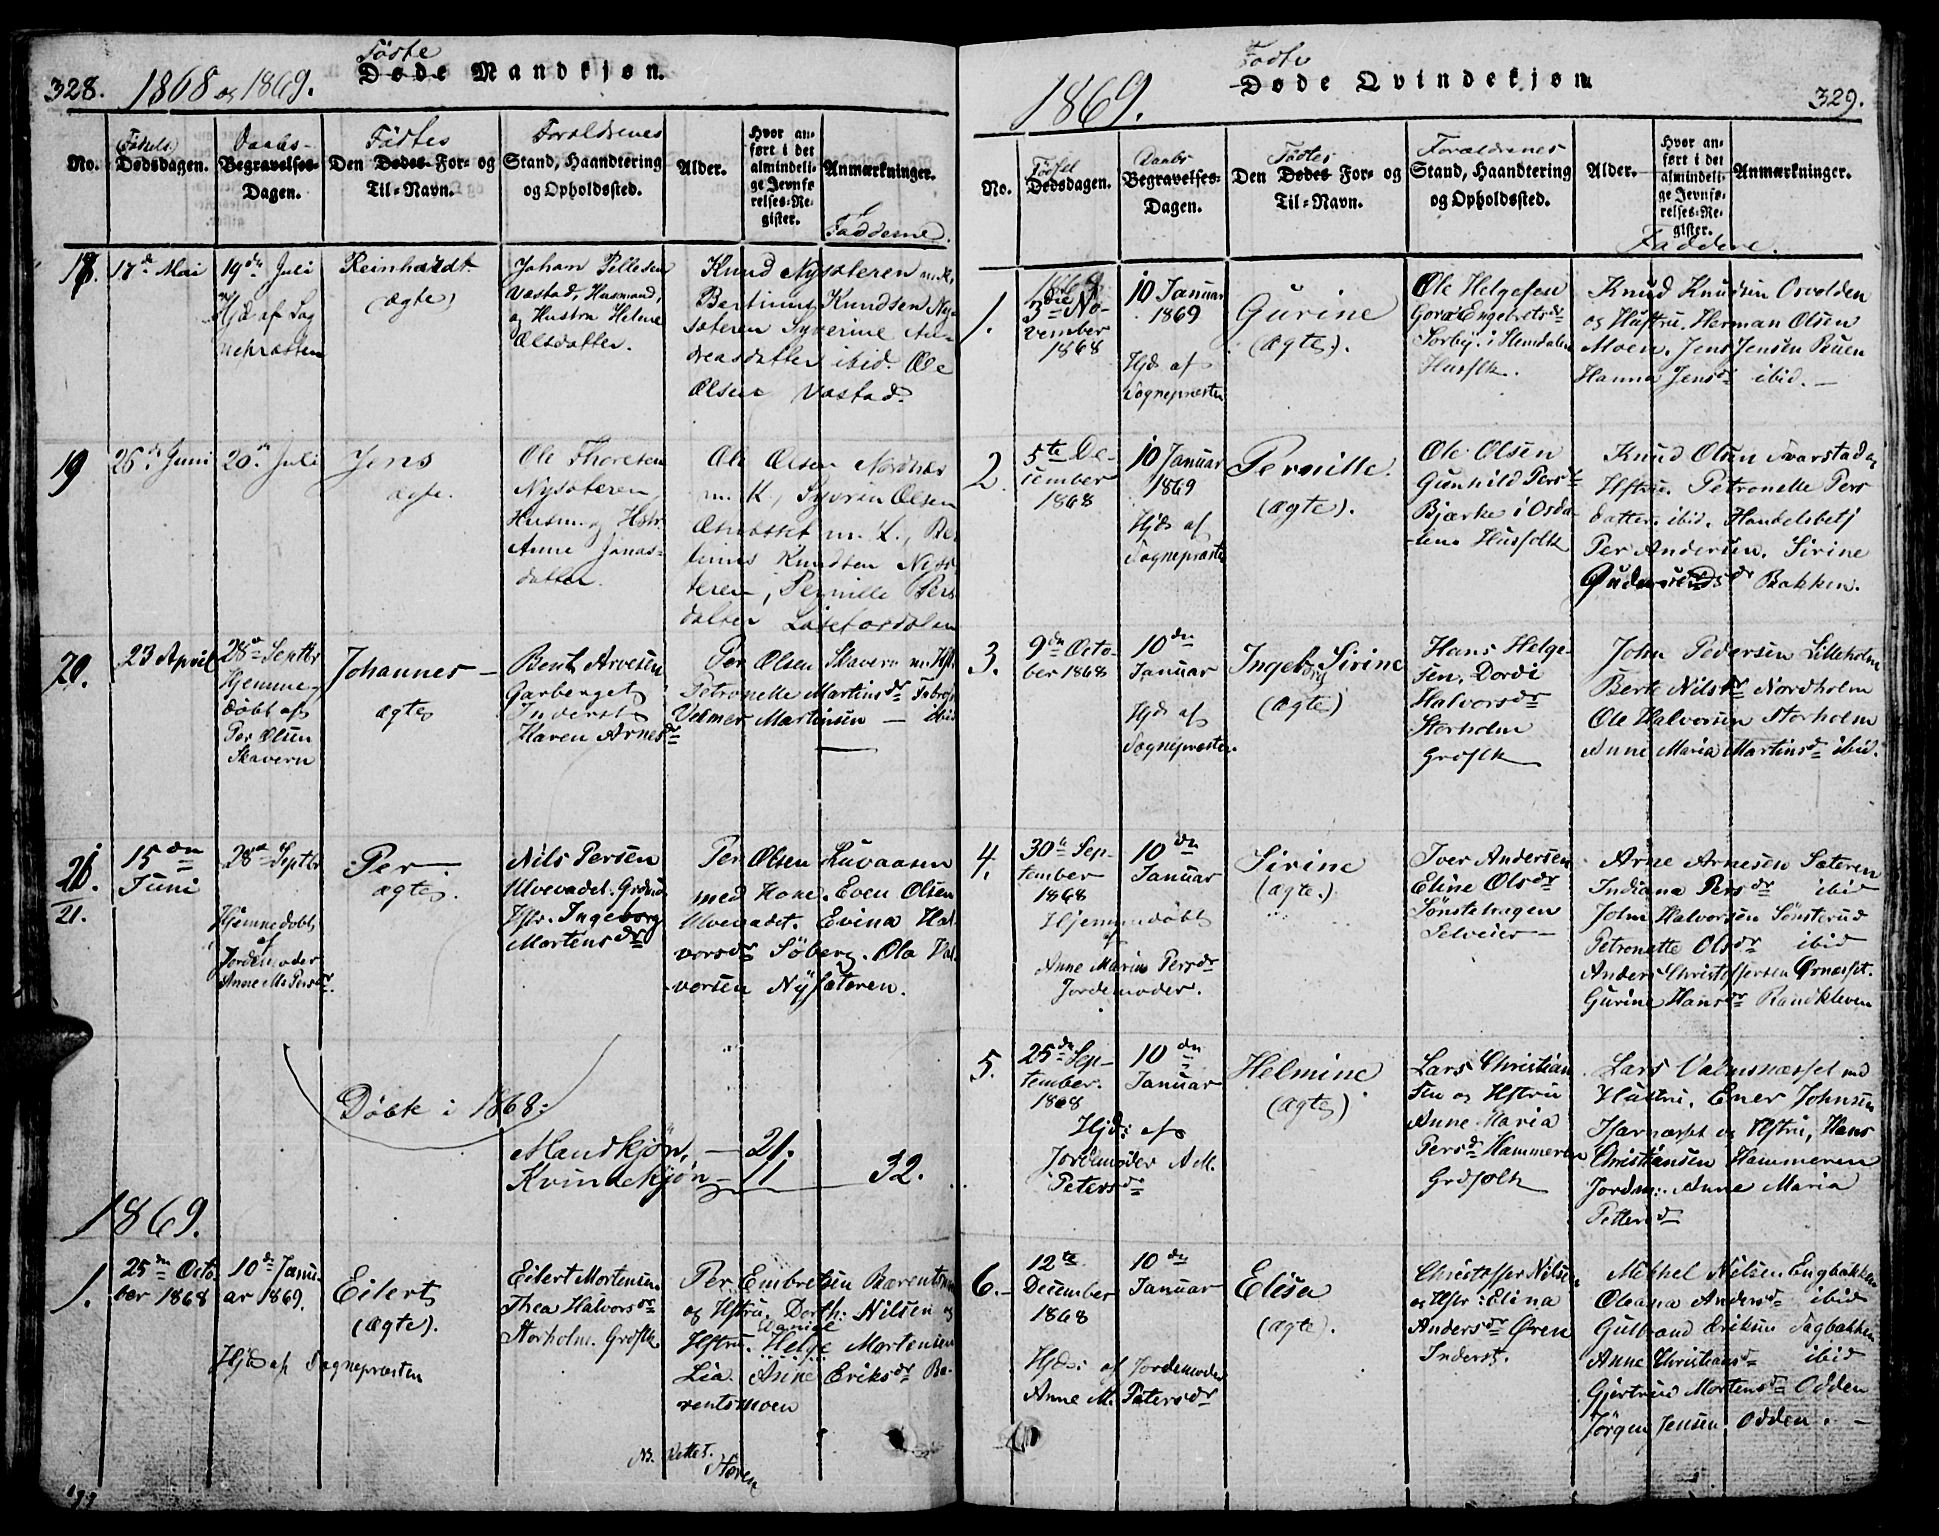 328.
1868 og 1869.
Födte
Døde Mandkjøn.
No.
Födsels
Dødsdagen.
Daabs-
Begravelses-
Dagen.
Födtes
Den Dødes For- og
Til-Navn.
Forældrenes
Stand, Haandtering
og Opholdssted.
Alder.
Hvor an-
ført i det
almindeli-
ge Jevnfø
relses-Re-
gister.
Anmærkninger.
Fadderne.
18.
17de Mai
19de Juli
Hjd. af Sog
nepræsten
Reinhardt
(ægte)
Johan Pellesen
Væstad, Husmand,
og Hustru Helene
Olsdatter.
Knud Nysæteren m. K,
Bertinus Knudsen Ny-
sæteren Syverine An-
dreasdatter ibid. Ole
Olsen Væstad.
19
25de Juni
20de Juli
Jens
ægte.
Ole Thoresen
Nysæteren,
Husm. og Hstr.
Anne Jonas-
datter.
Ole Olsen Nordnæs
m. K, Syverin Olsen
m. K., Be-
tinus Knudsen Nysæ-
teren, Pernille Pers
datter
20.
23 April
28de Septbr
Hjemme-
döbt af
Per Olsen
Skavern
Johannes
ægte
Bent Arvesen
Garberget
Inderst
Karen Arnesdr
Per Olsen Skavern m. Hst.
Petronelle Martinsdr
Velmer Martinsen — ibid
21.
21.
15de
Juni
28de Septbr
Hjemmedöbt
af
Jordemoder
Anne M. Persdr.
Per
ægte.
Nils Persen
Ulvevadet. Grdmd
Hstr. Ingeborg
Mortensdr
Per Olsen Luvaasen
med Kone. Even Olsen
Ulvevadet. Evina Hal-
vorsdr Söberg. Ola Hal-
vorsen Nysæteren.
Döbte i 1868:
Mandkjön, — 21.
Kvindekjön — 11 — 32.
1869.
1.
25de Octo-
ber 1868
10de Janu-
ar 1869.
Hjd af Sognepræsten
Eilert
(ægte).
Eilert Mortensen
Thea Halvorsdr
Storholm. Grdflk.
Per Embretsen Bærentsm
og Hstru. Dorth: Nilsen og
Hstru. Helge Mortensen
Lia. Anne Eriksdr Bæ-
rentsmoen
329.
1869.
Födte
Døde Qvindekjøn
No.
Födsel
Dødsdagen.
Daabs
Begravelses-
Dagen.
Födtes
Den Dødes For- og
Til-Navn.
Forældrenes
Stand, Haandtering
og Opholdssted.
Alder.
Hvor an-
ført i det
almindeli-
ge Jevnfø-
relses-Re-
gister.
Anmærkninger.
Faddere.
1.
3die No-
vember
1868
10 Januar
1869
Hjd. af
Sognepræsten
Gurine
(ægte).
Ole Helgesen
Goro Engebretsdr
Sorby i Slemdalen
Husflk.
Knud Knudsen Osvolden
og Hustru, Herman Olsen
Moen. Jens Jensen Buen
Hanna Jensdr ibid. —
2.
5te De-
cember
1868
10 Januar
1869
Hjd. af
Sognepræsten
Pernille.
(ægte).
Ole Olsen
Gunhild Persdr
Bjærke i Osda-
len. Husfolk
Knud Olsen Svarstad og
Hstru. Petronelle Pers
datter. ibid. Handelsbetj
Per Andersen. Sirine
Bakken.
3.
9de Octo-
ber 1868
10de
Januar
Hjd. af
Sognepræsten.
Ingeborg Sirine
(ægte)
Hans Helge-
sen. Dordi
Halvorsdr
Storholm
Grdflk
John Pedersen Lilleholm
Berte Nilsdr Nordholm
Ole Halvorsen Storholm
Anne Maria Martinsdr ibid.
4.
30te Sep-
tember
1868
10de
Januar
Hjemmedöbt
af
Anne Marie Persdr
Jordemoder.
Sirine
(ægte.)
Iver Andersen
Eline Olsdr
Sönstehagen
Selveier —
Arne Arnesen Sæteren
Indiana Persdr ibid
John Halvorsen Sönsterud
Petronette Olsdr ibid
Anders Christoffersen Ørnæsset.
Gurine Hansdr Randkleven
5.
25de Sep-
tember.
1868
10de
Januar
Hjd: af
Jordemoder A M.
Petersdr
Helmine
(ægte)
Lars Christian
sen og Hstru
Anne Maria
Persdr Hammeren
Grdfolk
Lars Valmsnæsset med
Hustru. Ener Johnsen
og Hstru, Hans
Christiansen Hammeren
Jordm: Anne Maria
Pettersdr
6.
12te
December
1868
10de
Januar
Hjd: af Jordemoder
Anne M. Petersdr
Elisa
(ægte).
Christoffer Nilsen
og Hstr: Elina
Andersdr Øren
Inderst.
Mikkel Nilsen Engbakken
Oleana Andersdr ibid
Gulbrand Eriksen Sagbakken
Anne Christiansdr ibid
Gjertrud Mortensdr Odden
Jörgen Jensen Odden. —